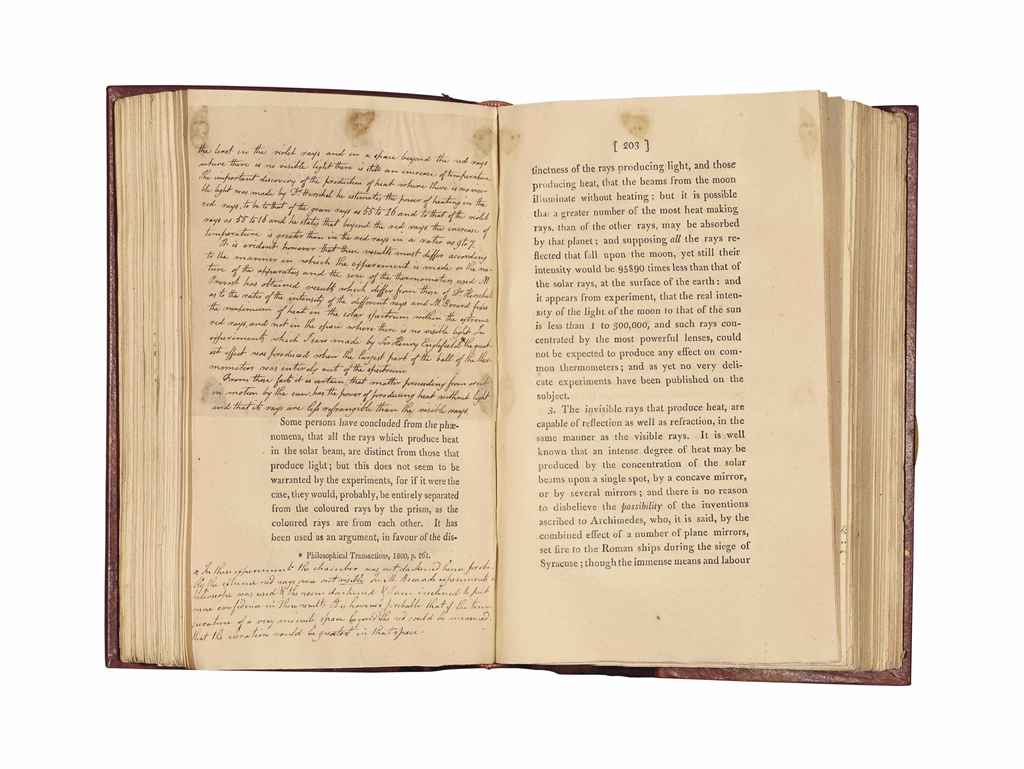 the least in the violet rays and in a space beyond the red rays
where there is no visible light there is still an increase of temperature
the important discovery of the production of heat where there is no visi-
ble light was made by Dr Herschel he estimates the power of heating in the
red rays, to be to that of the green rays as 55 to 26 and to that of the violet
rays as 55 to 16 and he states that beyond the red rays the increase of
temperature is greater than in the red rays in a ratio as 9 to 7.
It is evident however that these results must differ according
to the manner in which the experiment is made or the na-
ture of the apparatus and the size of the thermometers used M
has obtained results which differ from those of Dr Herschel
as to the ratio of the intensity of the different rays and M Berard fixes
the maximum of heat in the solar spectrum within the extreme
red rays, and not in the space where there is no visible light. In
experiments which I saw made by Sir Henry Englefield the great-
est effect was produced when the largest part of the ball of the ther-
mometer was entirely out of the spectrum
From these facts it is certain, that matter proceeding from or set
in motion by the sun, has the power of producing heat without light
and that its rays are less refrangible than the visible rays
Some persons have concluded from the phæ-
nomena, that all the rays which produce heat
in the solar beam, are distinct from those that
produce light; but this does not seem to be
warranted by the experiments, for if it were the
case, they would, probably, be entirely separated
from the coloured rays by the prism, as the
coloured rays are from each other. It has
been used as an argument, in favour of the dis-
* Philosophical Transactions, 1800, p. 261.
x In these experiments the chamber was not darkened hence proba-
bly the extreme red rays were not visible in M Berards experiments a
heliostate was used & the room darkened & I am inclined to put
more confidence in these results It is however probable that if the tem-
perature of a very minute space beyond the red could be measured
that the elevation would be greatest in that space.
[ 203 ]
tinctness of the rays producing light, and those
producing heat, that the beams from the moon
illuminate without heating; but it is possible
that a greater number of the most heat-making
rays, than of the other rays, may be absorbed
by that planet; and supposing all the rays re-
flected that fall upon the moon, yet still their
intensity would be 95890 times less than that of
the solar rays, at the surface of the earth: and
it appears from experiment, that the real inten-
sity of the light of the moon to that of the sun
is less than 1 to 300,000, and such rays con-
centrated by the most powerful lenses, could
not be expected to produce any effect on com-
mon thermometers; and as yet no very deli-
cate experiments have been published on the
subject.
3. The invisible rays that produce heat, are
capable of reflection as well as refraction, in the
same manner as the visible rays. It is well
known that an intense degree of heat may be
produced by the concentration of the solar
beams upon a single spot, by a concave mirror,
or by several mirrors; and there is no reason
to disbelieve the possibility of the inventions
ascribed to Archimedes, who, it is said, by the
combined effect of a number of plane mirrors,
set fire to the Roman ships during the siege of
Syracuse; though the immense means and labour